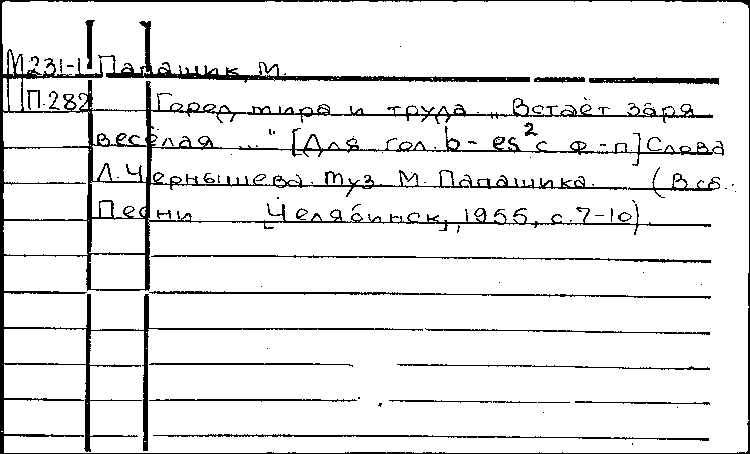 М231-1 Папашик, М.
П.282 Город мира и труда „Встаёт заря
весёлая ..." [Для гол. b - es² с ф-п] Слова
Л. Чернышева Муз. М. Папашика. (В сб.:
Песни [Челябинск], 1955, с. 7-10).